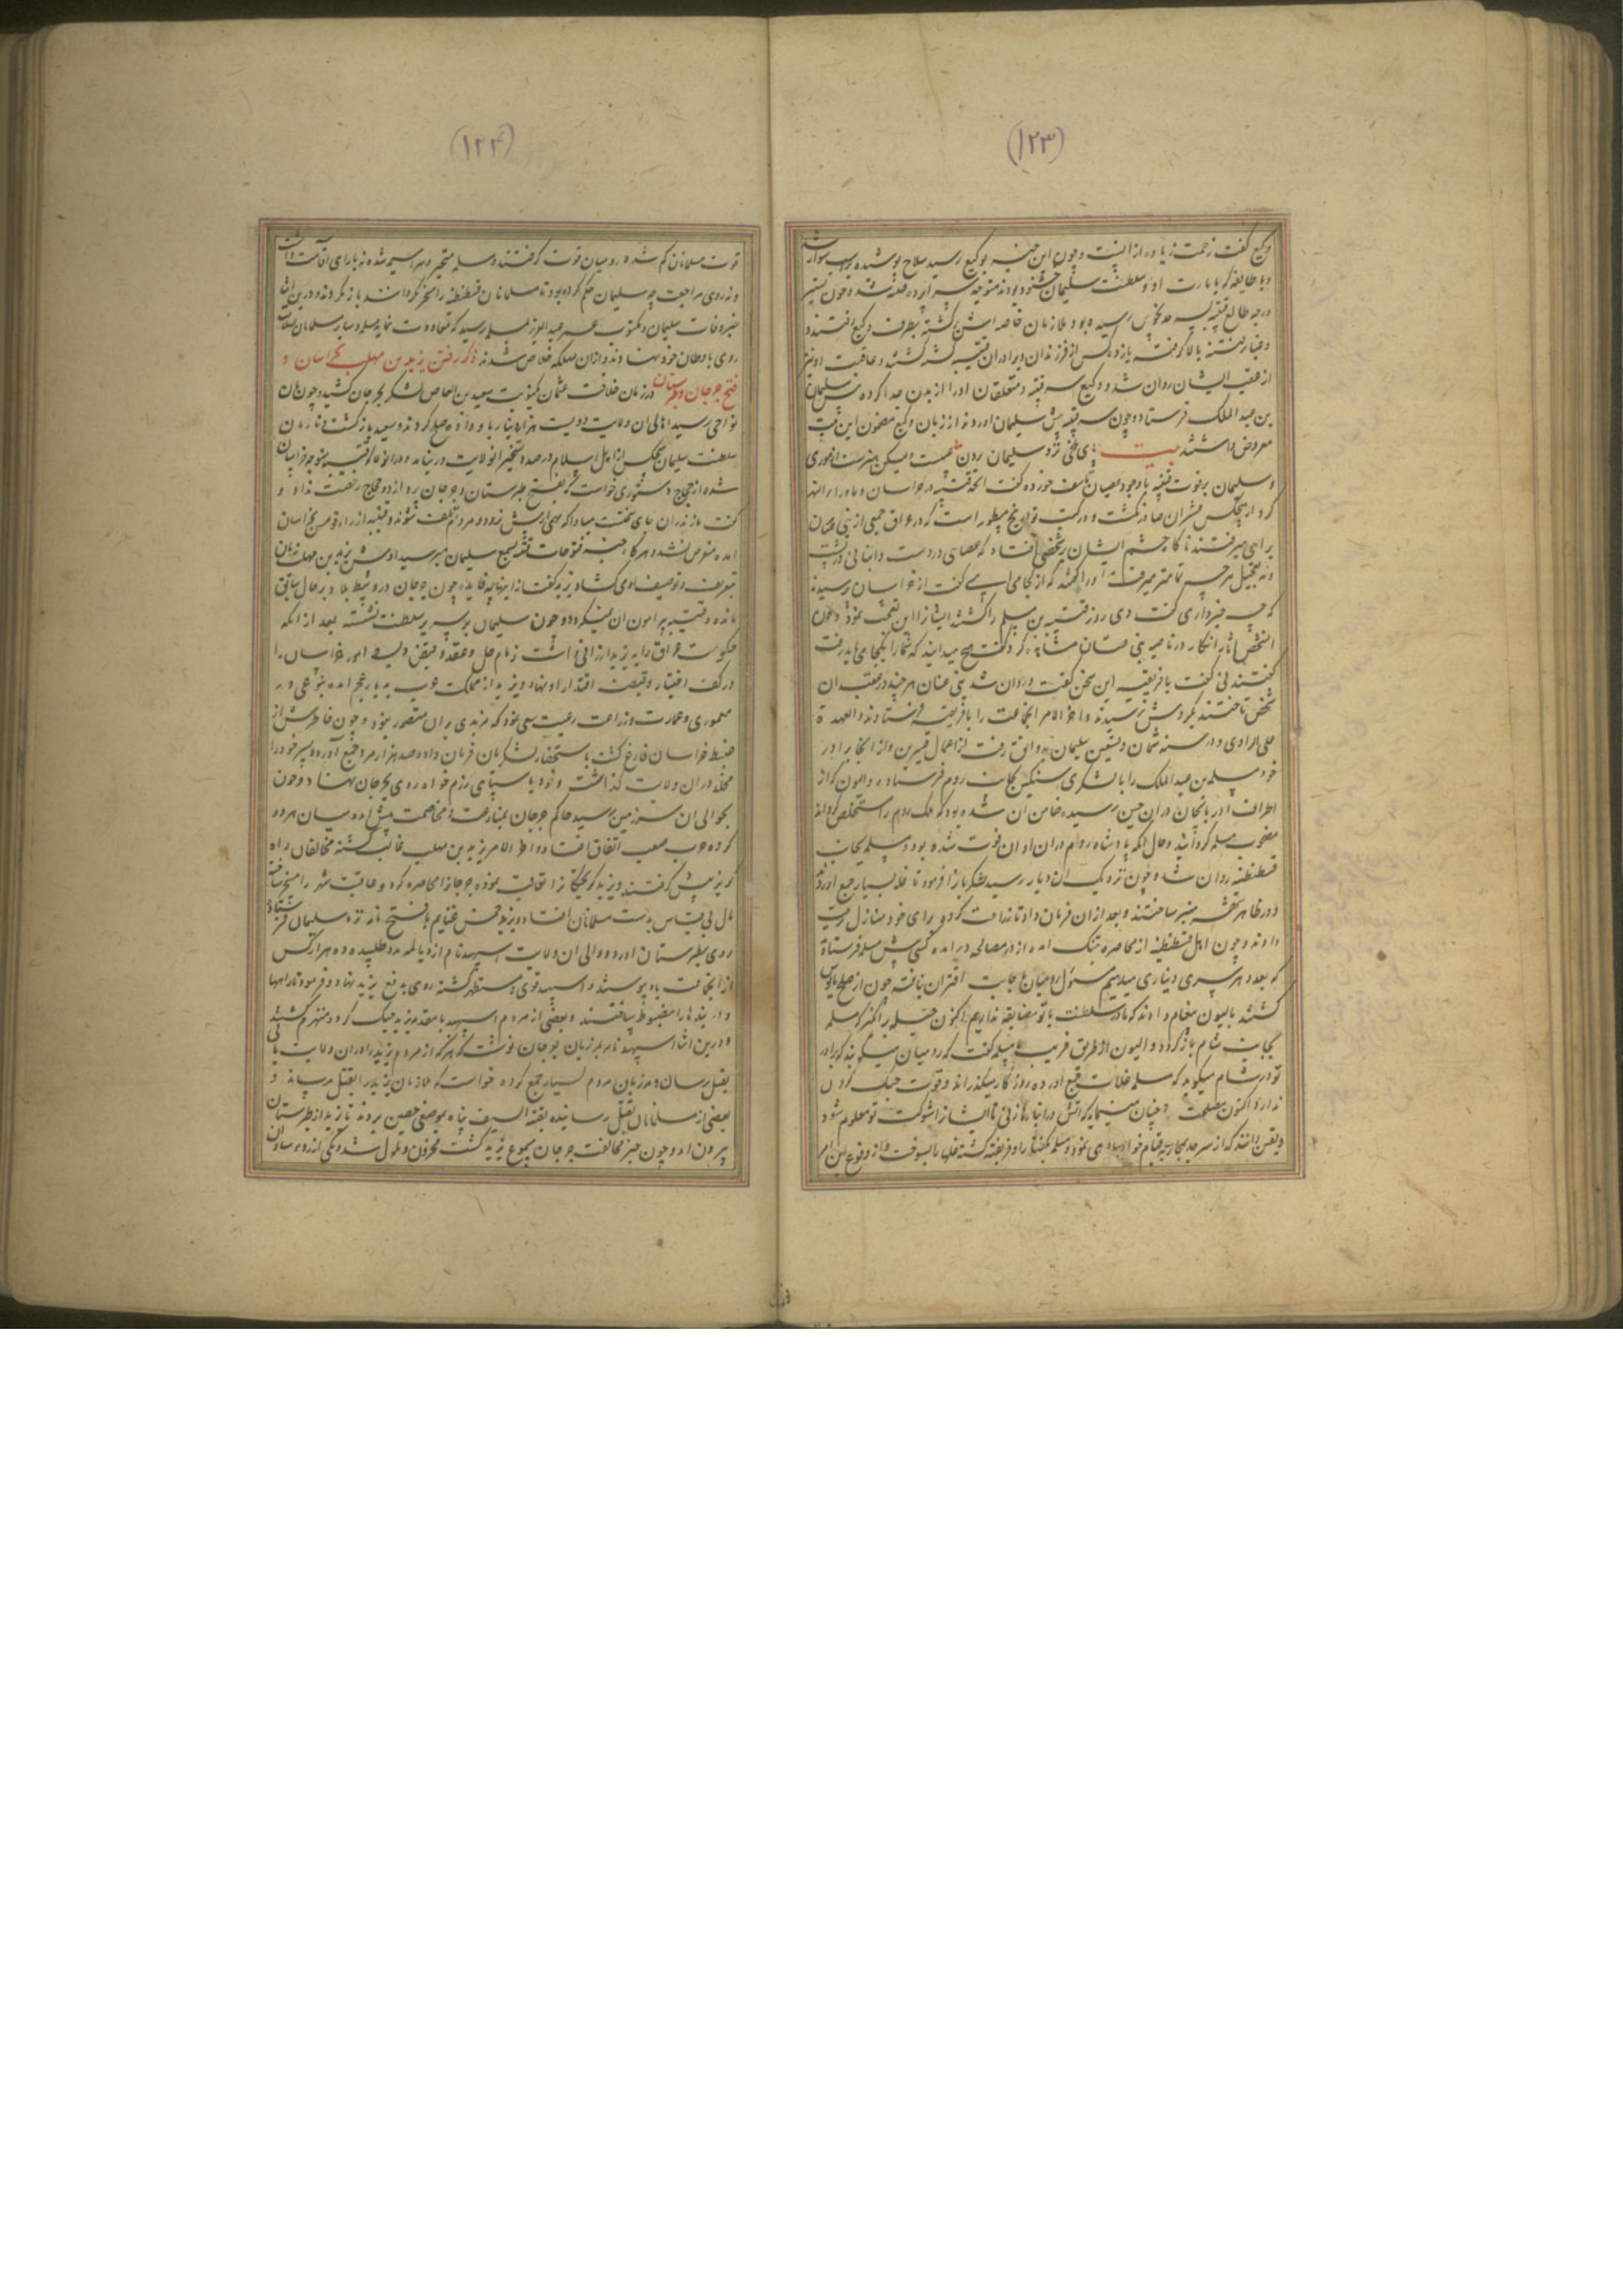 (۱۲۳)
وکیع گفت زحمت زیاده از اینست و چون این خبر بوکیع رسید سلاح پوشیده بر اسب سوار شد
و با طایفه که بامارت او و سلطنت سلیمان خشنود بودند متوجه سراپرده قتیبه شد و چون
درجه طالع قتیبه رسیده بود ملازمان خاصه اش کشته بطرف وکیع رفتند و
و غبار فتنه بالا گرفته یازده کس از فرزندان و برادران قتیبه کشته گشتند و عاقبت او نیز
از عقب ایشان روان شد و وکیع سر قتیبه و متعلقان او را از بدن جدا کرده پیش سلیمان
بن عبد الملک فرستاد و چون سر قتیبه پیش سلیمان اوردند از زبان وکیع مضمون این بیت
معروض داشتند بیت پای ملخی نزد سلیمان بردن عیبست ولیکن هنرست از موری
و سلیمان بر فوت قتیبه با وجود عصیان تاسف خورده گفت انچه قتیبه در خراسان و ماوراء النهر
کرد از هیچکس دیگر ان صادر نگشت و در کتب تواریخ مسطور است که در عراق جمعی از بنی غسان
براهی میرفتند ناگاه چشم ایشان بر شخصی افتاد که عصای در دست و انبانی در پشت
و به تعجیل هر چه تمامتر میرفت او را گفتند که از کجا می ایی گفت از خراسان رسیدند
که چه خبر داری گفت دی روز قتیبه بن مسلم را کشتند ایشان از این تعجب نمودند چون
انشخص اثار انکار در ناصیه بنی غسان مشاهده کرد گفت هیچ میدانید که شما را بکجا می باید رفت
گفتند نی گفت بافریقیه این سخن گفت و روان شد بنی غسان هر چند در عقب ان
شخص تاختند بگردش نرسیدند و اخر الامر انجماعت را بافریقیه فرستادند و العهدة
علی الراوی و در سنه ثمان و تسعین سلیمان بدوابق رفت از اعمال قنسرین و از انجا برادر
خود مسلمه بن عبد الملک را با لشکری سنگین بجانب روم فرستاد و الیون که از
اطراف اذربایجان در ان حین رسیده ضامن ان شده بود که ملک روم را مستخلص گرداند
مصحوب مسلمه گردانید و حال انکه پادشاه روم در ان اوان فوت شده بود و مسلمه بجانب
قسطنطنیه روان شد و چون نزدیک ان دیار رسید لشکریانرا فرمود تا غله بسیار جمع اوردند
و در ظاهر شهر منبر ساختند و بعد از ان فرمان داد تا زراعت کردند و برای خود منازل ترتیب
دادند و چون اهل قسطنطنیه از محاصره بتنگ امدند از در مصالحه در امده کسی پیش مسلمه فرستادند
که بعدد هر سری دیناری میدهیم مسئول رومیان باجابت اقتران نیافته چون از صلح مایوس
گشتند بالیون پیغام دادند که ما در سلطنت با تو مضایقه نداریم اکنون حیله بر انگیز که مسلمه
بجانب شام بازگردد و الیون از طریق فریب با مسلمه گفت که رومیان میگویند که برادر
تو در شام میگوید که مسلمه غلات جمع اورده روزگار میگذراند و قوت جنک کردن
ندارد اکنون مصلحت چنان مینماید که اتش در انبارها زنی تا ایشانرا شوکت تو معلوم شود
و یقین دانند که از سر جد بمحاربه قیام خواهی نمود و مسلمه بگفتار او فریفته گشته غلها را بسوخت و از وقوع این امر
(۱۲۴)
قوت مسلمانان کم شده رومیان قوت گرفتند و مسلمه متحیر و سراسیمه شده نه یارای اقامت داشت
و نه روی مراجعت چه سلیمان حکم کرده بود تا مسلمانان قسطنطنیه را مسخر نگردانند باز نگردند و درین اثنا
خبر وفات سلیمان و مکتوب عمر عبد العزیز بمسلمه رسید که معاودت نماید مسلمه و سایر مسلمانان
روی باوطان خود نهادند و از ان مهلکه خلاص شدند ذکر رفتن یزید بن مهلب بخراسان و
فتح جرجان و طبرستان در زمان خلافت عثمان یکنوبت سعید بن العاص لشکر بجرجان کشید و چون بان
نواحی رسید اهالی ان ولایت دویست هزار دینار باو داده صلح کردند و سعید بازگشت و تا زمان
سلطنت سلیمان هیچکس از اهل اسلام درصدد تسخیر انولایت در نیامد و در انوقت که قتیبه متوجه خراسان
شده از حجاج دستوری خواست که بفتح طبرستان و جرجان پردازد و حجاج رخصت نداد و
گفت مازندران جای سختست مبادا که مهمی از پیش نرود و مردم تلف شوند و قتیبه از راه قومس بخراسان
امده متعرض نشد و هرگاه خبر فتوحات قتیبه بسمع سلیمان میرسید او پیش یزید بن مهلب زبان
بتعریف و توصیف او می گشاد و یزید گفت از اینها چه فایده چون جرجان در وسط بلاد بر حال سابق
مانده و قتیبه پیرامون ان نمیگردد و چون سلیمان بر سریر سلطنت نشسته بعد از انکه
حکومت عراق را به یزید ارزانی داشت زمام حل و عقد و قبض و بسط امور خراسان را
در کف اختیار و قبضه اقتدار او نهاد و یزید از مملکت عرب بدیار عجم امده بنوعی در
معموری و عمارت و زراعت و رعیت سعی نمود که مزیدی بر ان متصور نبود و چون خاطرش از
ضبط خراسان فارغ گشت باستحضار لشکریان فرمان داد و صد هزار مرد جمع آورد و پسر خود را
مخلد در ان ولایت گذاشت و خود با سپاهی رزم خواه روی بجرجان نهاد و چون
بحوالی ان سرزمین رسید حاکم جرجان بمنازعت و مخاصمت پیش امده میان هر دو
گروه حرب صعب اتفاق افتاد و اخر الامر یزید بن مهلب غالب گشته مخالفان راه
گریز پیش گرفتند و یزید گریختگانرا تعاقب نموده جرجانرا محاصره کرد و عاقبت شهر را مسخر ساخته
مال بی قیاس بدست مسلمانان افتاد و یزید خمس غنایم با فتح نامه نزد سلیمان فرستاد و
روی بطبرستان اورد و والی ان ولایت اسپهبد نام از دیالمه مدد طلبیده ده هزار کس
از انجماعت بدو پیوستند و اسپهبد قوی و مستظهر گشته روی بدفع یزید نهاد و فرمود تا راهها
و دربندها را مضبوط ساختند و بعضی از مردم اسپهبد با مقدمه یزید جنک کرده منهزم گشتند
و درین اثنا اسپهبد نامه بمرزبان جرجان نوشت که هرکه از مردم یزید در ان ولایت یابی
بقتل رسان و مرزبان مردم بسیار جمع کرده خواست که ملازمان یزید را بقتل رساند و
بعضی از مسلمانان بقتل رسانیده بقیة السیف پناه بموضعی حصین بردند تا یزید از طبرستان
بیرون امد و چون خبر مخالفت جرجان بسمع یزید گشت محزون و ملول شد و یکی از روساء ان